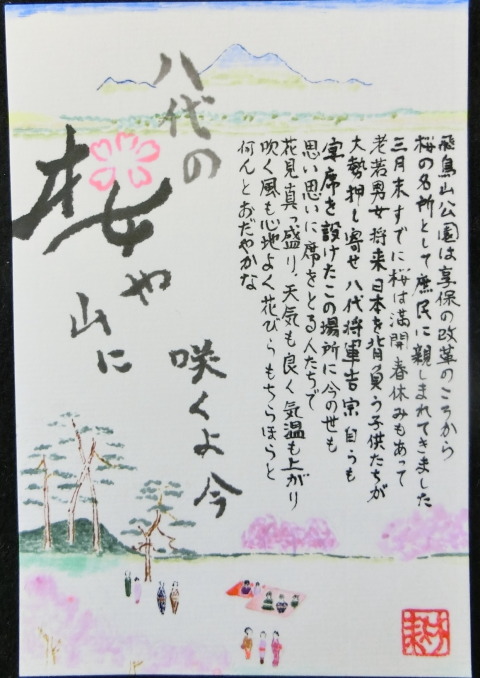 飛鳥山公園は享保の改革のころから
桜の名所として庶民に親しまれてきました
三月末すでに桜は満開 春休みもあって
老若男女 将来日本を背負う子供たちが
大勢押し寄せ 八代将軍吉宗 自らも
宴席を設けたこの場所に今の世も
思い思いに席をとる人たちで
花見真っ盛り、天気も良く気温も上がり
吹く風も心地よく花びらもちらほらと
何んとおだやかな
八代の
桜や
山に
咲くよ今